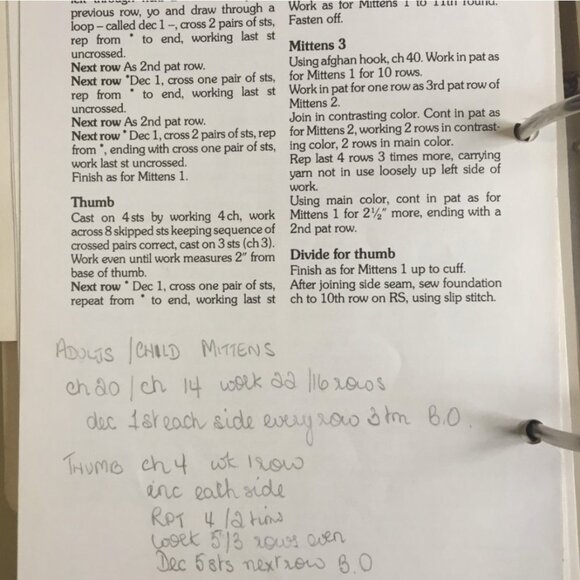 previous row, yo and draw through a
loop – called dec 1 –, cross 2 pairs of sts,
rep from * to end, working last st
uncrossed.
Next row As 2nd pat row.
Next row *Dec 1, cross one pair of sts,
rep from * to end, working last st
uncrossed.
Next row As 2nd pat row.
Next row * Dec 1, cross 2 pairs of sts, rep
from *, ending with cross one pair of sts,
work last st uncrossed.
Finish as for Mittens 1.
Thumb
Cast on 4 sts by working 4 ch, work
across 8 skipped sts keeping sequence of
crossed pairs correct, cast on 3 sts (ch 3).
Work even until work measures 2" from
base of thumb.
Next row * Dec 1, cross one pair of sts,
repeat from * to end, working last st
Work as for Mittens 1 to 11th round.
Fasten off.
Mittens 3
Using afghan hook, ch 40. Work in pat as
for Mittens 1 for 10 rows.
Work in pat for one row as 3rd pat row of
Mittens 2.
Join in contrasting color. Cont in pat as
for Mittens 2, working 2 rows in contrast-
ing color, 2 rows in main color.
Rep last 4 rows 3 times more, carrying
yarn not in use loosely up left side of
work.
Using main color, cont in pat as for
Mittens 1 for 2½" more, ending with a
2nd pat row.
Divide for thumb
Finish as for Mittens 1 up to cuff.
After joining side seam, sew foundation
ch to 10th row on RS, using slip stitch.
ADULTS / CHILD MITTENS
ch 20 / ch 14 work 22 / 16 rows
dec 1st each side every row 3 tm B.O.
THUMB ch 4 wk 1 row
inc each side
RPT 4 / 2 tims
work 5/3 rows even
Dec 5 sts next row B.O